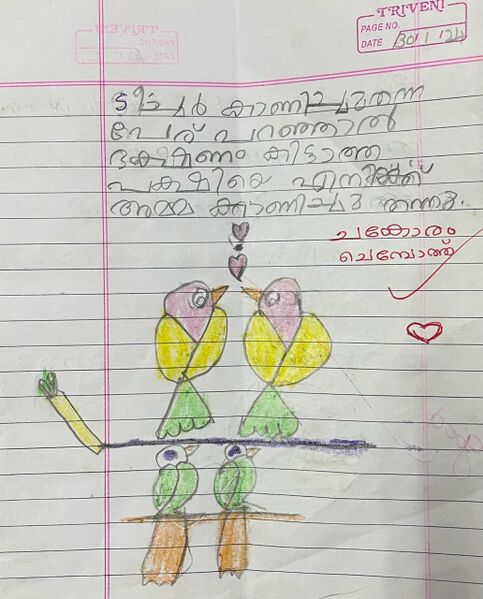 TRIVENI
PAGE NO.
DATE 30/1/24
ടീച്ചർ കാണിച്ചുതന്ന
പേര് പറഞ്ഞാൽ
ഭക്ഷണം കിട്ടാത്ത
പക്ഷിയെ എനിക്ക്
അമ്മ കാണിച്ചു തന്നു.
ചകോരം
ചെമ്പോത്ത്